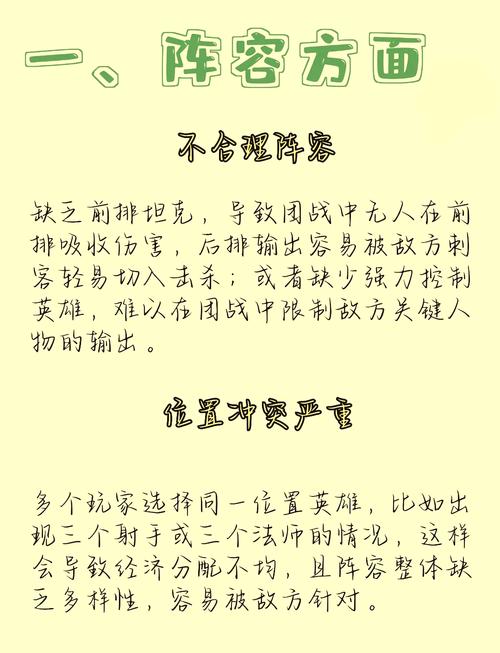 一、阵容方面
不合理阵容
缺乏前排坦克，导致团战中无人在前
排吸收伤害，后排输出容易被敌方刺
客轻易切入击杀；或者缺少强力控制
英雄，难以在团战中限制敌方关键人
物的输出。
位置冲突严重
多个玩家选择同一位置英雄，比如出
现三个射手或三个法师的情况，这样
会导致经济分配不均，且阵容整体缺
乏多样性，容易被敌方针对。